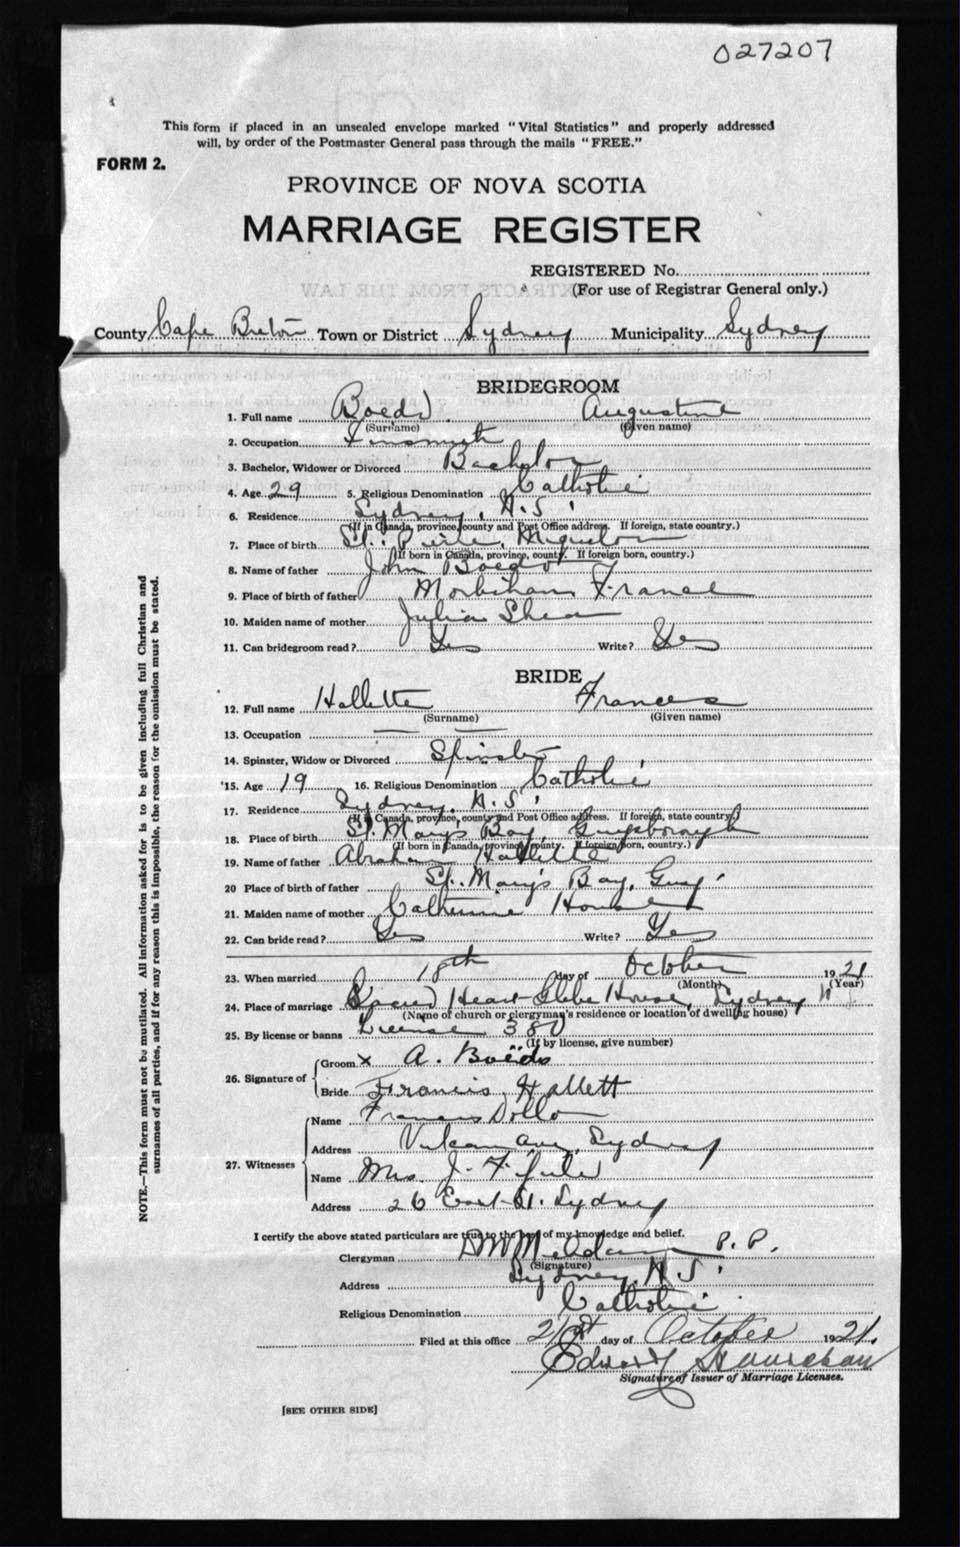 027207
This form if placed in an unsealed envelope marked "Vital Statistics" and properly addressed
will, by order of the Postmaster General pass through the mails "FREE."
FORM 2.
PROVINCE OF NOVA SCOTIA
MARRIAGE REGISTER
REGISTERED No.
(For use of Registrar General only.)
County Cape Breton Town or District Sydney Municipality Sydney
BRIDEGROOM
1. Full name Boedo Augustine
(Surname) (Given name)
2. Occupation Tinsmith
3. Bachelor, Widower or Divorced Bachelor
4. Age 29 5. Religious Denomination Catholic
6. Residence Sydney, N.S.
(If in Canada, province, county and Post Office address. If foreign, state country.)
7. Place of birth St. Pierre, Miquelon
(If born in Canada, province, county. If foreign born, country.)
8. Name of father John Boedo
9. Place of birth of father Morbihan France
10. Maiden name of mother Julia Shea
11. Can bridegroom read? Yes Write? Yes
BRIDE
12. Full name Hallette Frances
(Surname) (Given name)
13. Occupation — —
14. Spinster, Widow or Divorced Spinster
15. Age 19 16. Religious Denomination Catholic
17. Residence Sydney, N.S.
(If in Canada, province, county and Post Office address. If foreign, state country.)
18. Place of birth St. Mary's Bay, Guysborough
(If born in Canada, province, county. If foreign born, country.)
19. Name of father Abraham Hallette
20 Place of birth of father St. Mary's Bay, Guys.
21. Maiden name of mother Catherine
22. Can bride read? Yes Write? Yes
23. When married 18th day of October 1921
(Month) (Year)
24. Place of marriage Sacred Heart Glebe House, Sydney N S
(Name of church or clergyman's residence or location of dwelling house)
25. By license or banns License 380
(If by license, give number)
26. Signature of
Groom x A. Boëdo
Bride Francis Hallett
27. Witnesses
Name Francis Dollo
Address Vulcan Ave, Sydney
Name Mrs. J. F.
Address 26 East St. Sydney
I certify the above stated particulars are true to the best of my knowledge and belief.
Clergyman D M McAdam P. P.
(Signature)
Address Sydney, N.S.
Religious Denomination Catholic
Filed at this office 21st day of October 1921.
Edward
Signature of Issuer of Marriage Licenses.
[SEE OTHER SIDE]
NOTE.—This form must not be mutilated. All information asked for is to be given including full Christian and
surnames of all parties, and if for any reason this is impossible, the reason for the omission must be stated.